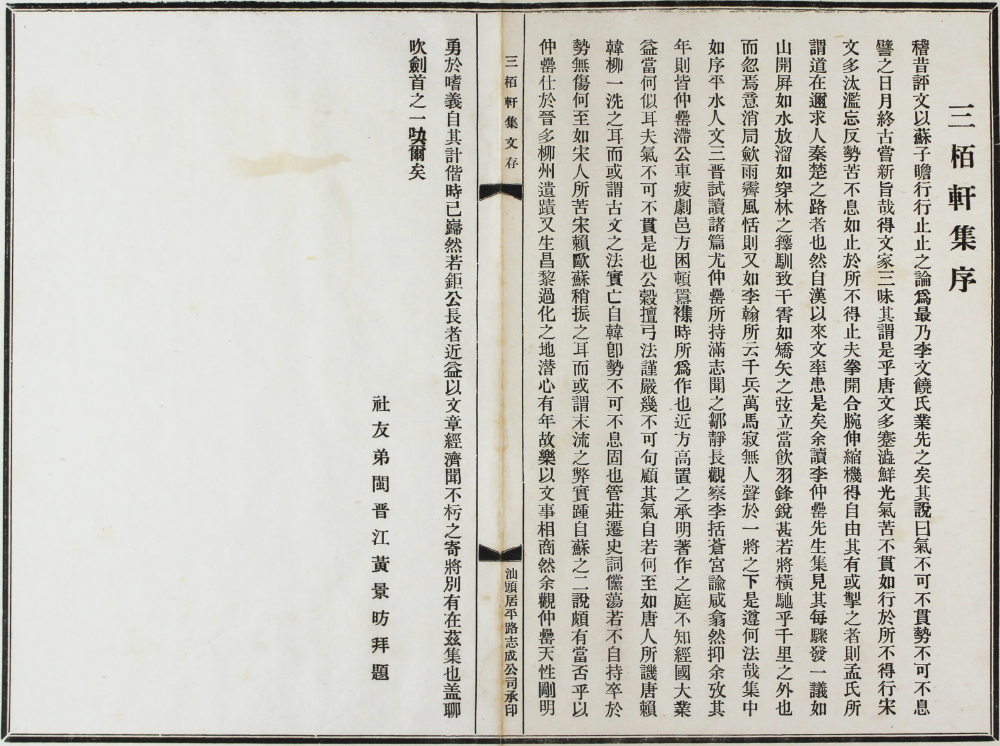 三栢軒集序
稽昔評文以蘇子瞻行行止止之論爲最乃李文饒氏業先之矣其說曰氣不可不貫勢不可不息
譬之日月終古嘗新旨哉得文家三昧其謂是乎唐文多蹇澁鮮光氣苦不貫如行於所不得行宋
文多汰濫忘反勢苦不息如止於所不得止夫拳開合腕伸縮機得自由其有或掣之者則孟氏所
謂道在邇求人秦楚之路者也然自漢以來文率患是矣余讀李仲罍先生集見其每驟發一議如
山開屏如水放溜如穿林之籜馴致千霄如矯矢之弦立當飲羽鋒銳甚若將橫馳乎千里之外也
而忽焉意消局歛雨霽風恬則又如李翰所云千兵萬馬寂無人聲於一將之下是遵何法哉集中
如序平水人文三晋試讀諸篇尤仲罍所持滿志聞之鄒靜長觀察李括蒼宮諭咸翕然抑余攷其
年則皆仲罍滯公車疲劇邑方困頓䙝襍時所爲作也近方高置之承明著作之庭不知經國大業
益當何似耳夫氣不可不貫是也公穀擅弓法謹嚴幾不可句顧其氣自若何至如唐人所譏唐賴
韓柳一洗之耳而或謂古文之法實亡自韓卽勢不可不息固也管莊遷史詞儻蕩若不自持卒於
勢無傷何至如宋人所苦宋賴歐蘇稍振之耳而或謂末流之弊實踵自蘇之二說頗有當否乎以
仲罍仕於晉多柳州遺蹟又生昌黎過化之地潛心有年故樂以文事相商然余觀仲罍天性剛明
三栢軒集文存
汕頭居平路志成公司承印
勇於嗜義自其計偕時已巋然若鉅公長者近益以文章經濟聞不朽之寄將別有在茲集也盖聊
吹劍首之一吷爾矣
社友弟閩晋江黃景昉拜題